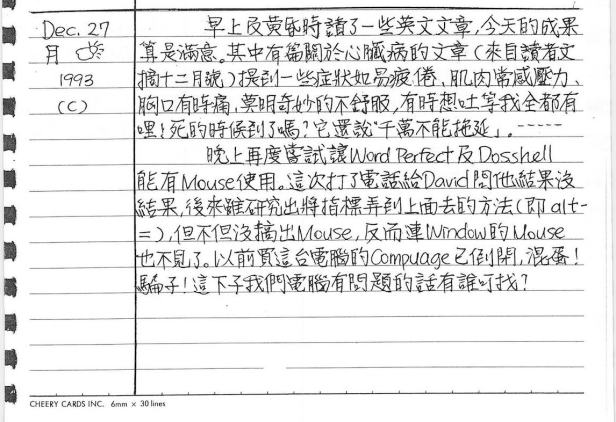 Dec. 27
月
1993
(C)
早上及黄昏時讀了一些英文文章，今天的成果
算是滿意。其中有篇關於心臟病的文章(來自讀者文
摘十二月號)提到一些症狀如易疲倦、肌肉常感壓力、
胸口有時痛，莫明奇妙的不舒服，有時想吐等我全都有
哩！死的時候到了嗎？它還說"千萬不能拖延」。-----
晚上再度嘗試讓Word Perfect及Dosshell
能有Mouse使用。這次打了電話給David問他結果沒
結果，後來雖研究出將指標弄到上面去的方法(即alt-
=)，但不但沒搞出Mouse，反而連Window的Mouse
也不見了。以前買這台電腦的Compuage已倒閉，混蛋！
騙子！這下子我們電腦有問題的話有誰可找？
CHEERY CARDS INC. 6mm × 30 lines